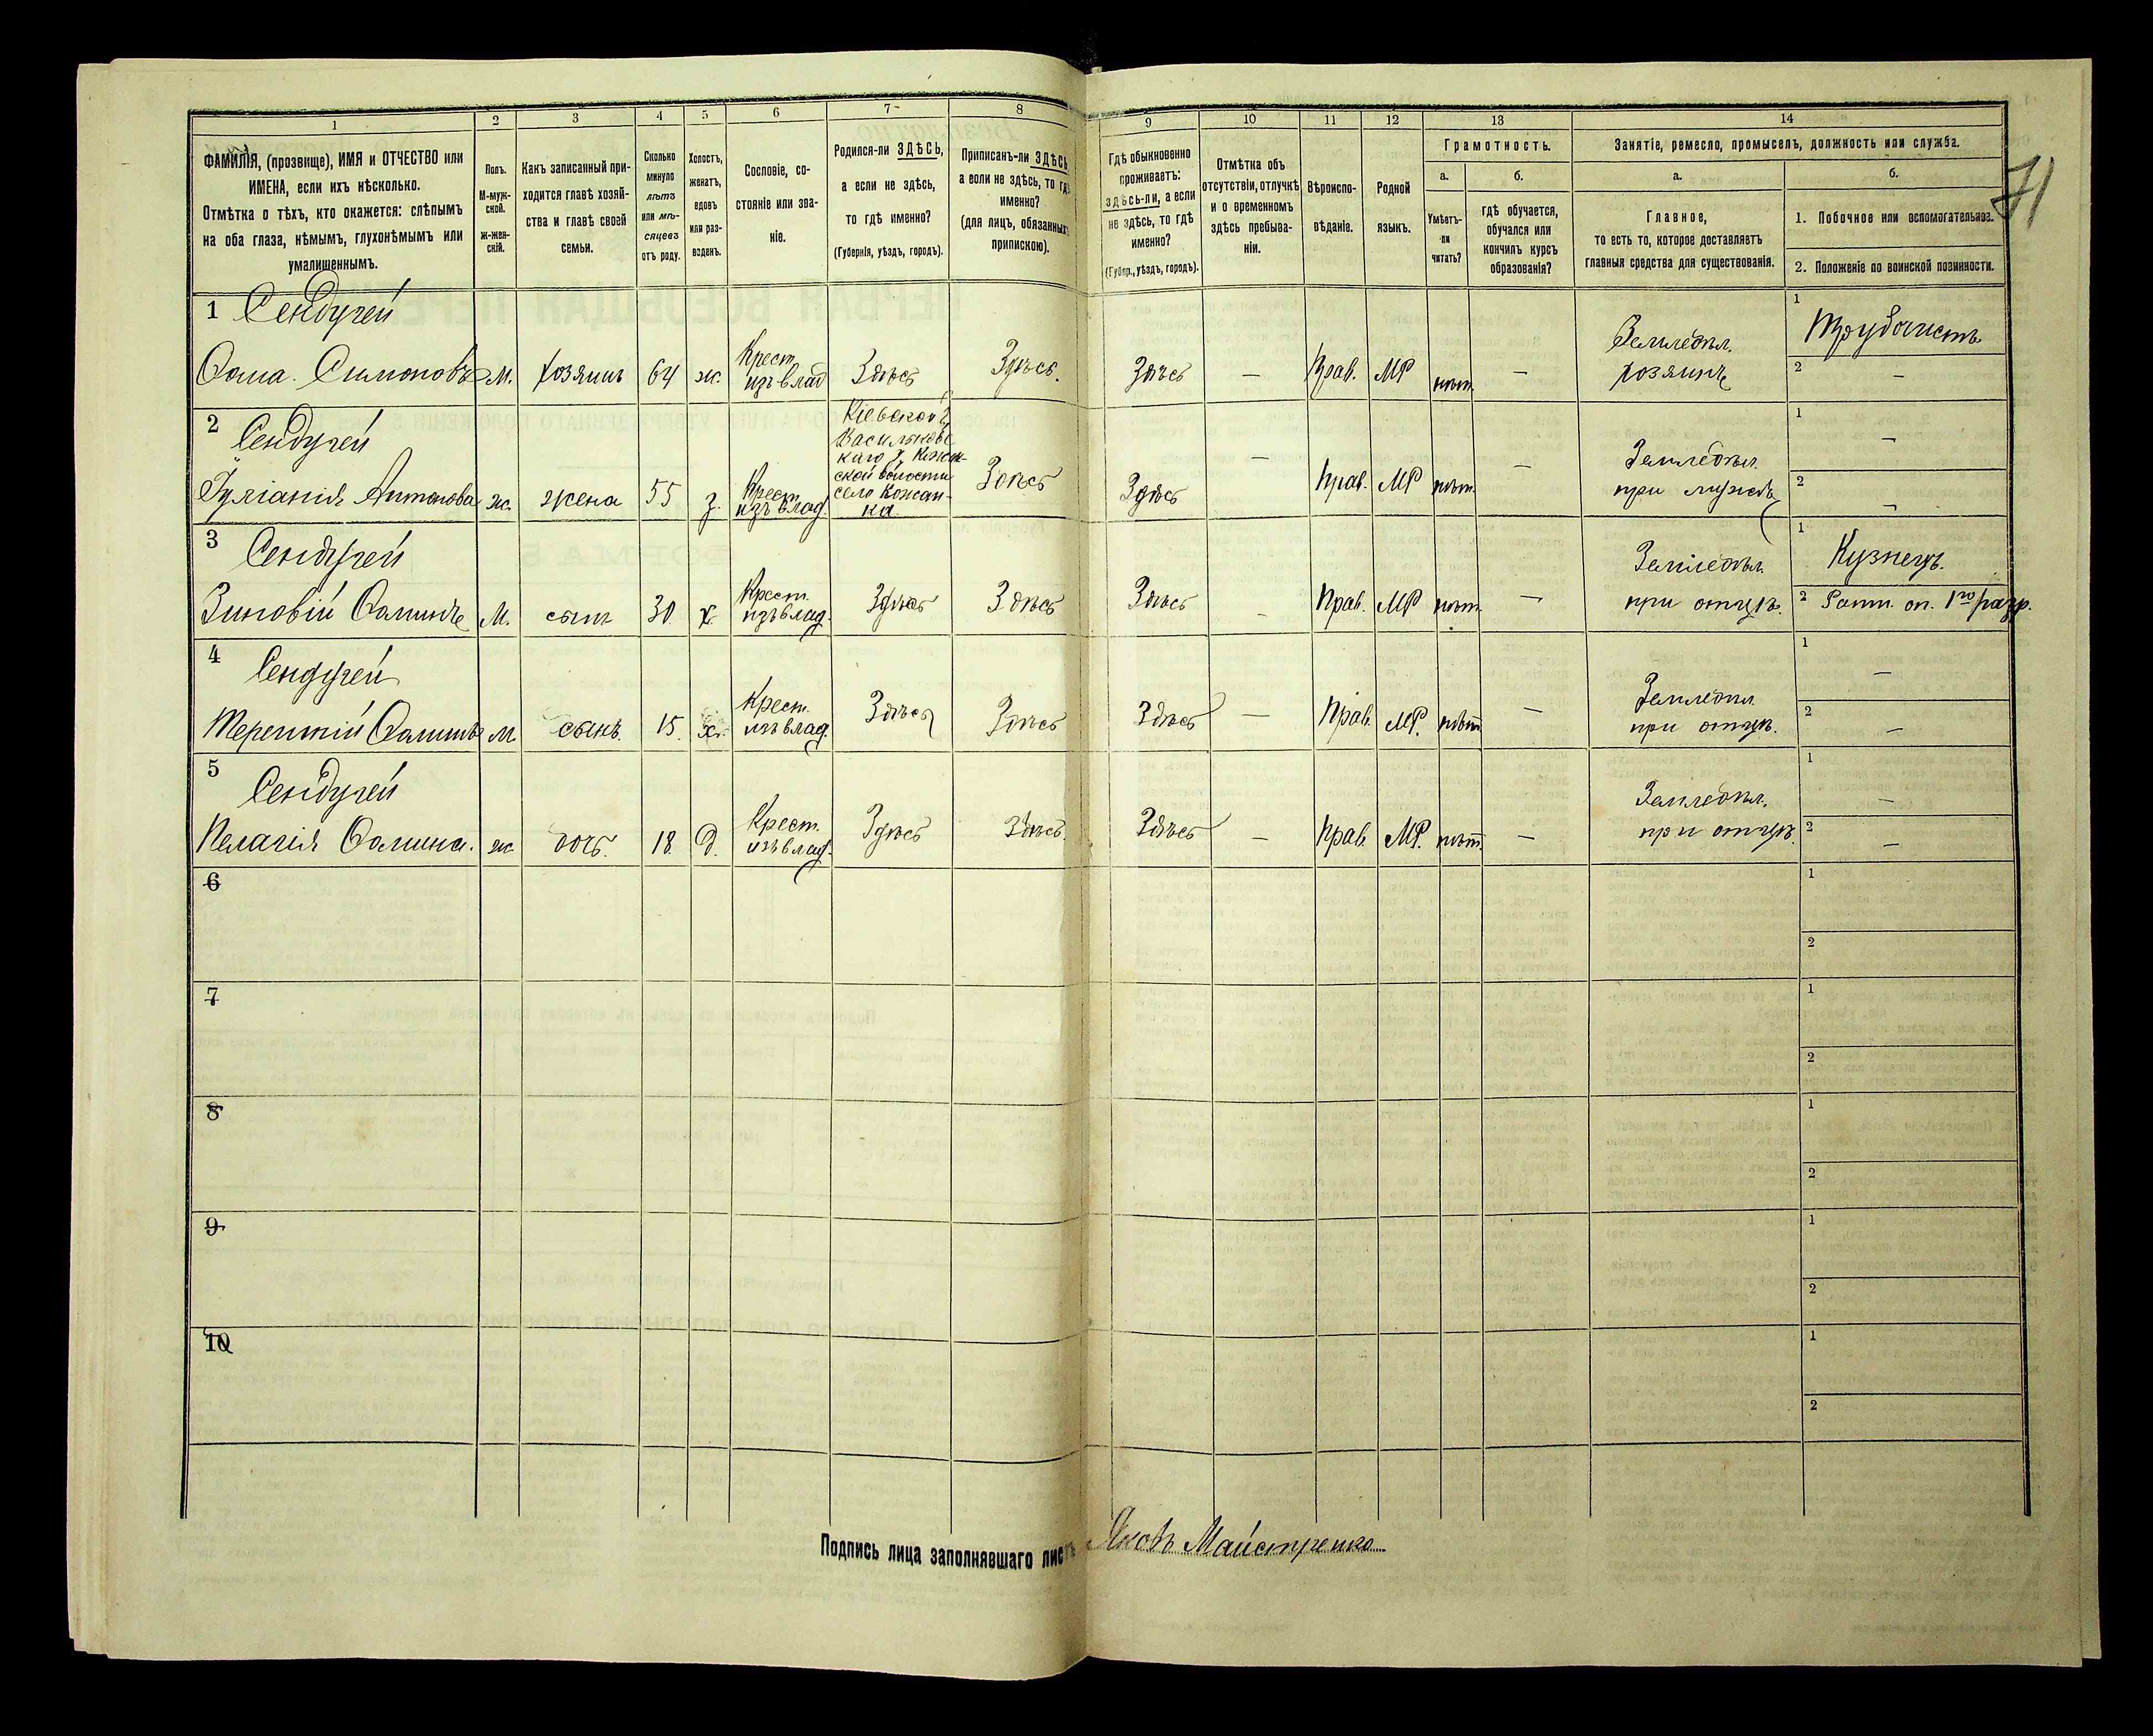 71
1 2 3 4 5 6 7 8 9 10 11 12 13 14
ФАМИЛІЯ, (прозвище), ИМЯ и ОТЧЕСТВО или
ИМЕНА, если ихъ нѣсколько.
Отмѣтка о тѣхъ, кто окажется: слѣпымъ
на оба глаза, нѣмымъ, глухонѣмымъ или
умалишеннымъ.
Полъ.
М-муж-
ской.
Ж-жен-
скій.
Какъ записанный при-
ходится главѣ хозяй-
ства и главѣ своей
семьи.
Сколько
минуло
лѣтъ
или мѣ-
сяцевъ
отъ роду.
Холостъ,
женатъ,
вдовъ
или раз-
веденъ.
Сословіе, со-
стояніе или зва-
ніе.
Родился-ли ЗДѢСЬ,
а если не здѣсь,
то гдѣ именно?
(Губернія, уѣздъ, городъ).
Приписанъ-ли ЗДѢСЬ
а если не здѣсь, то гдѣ
именно?
(для лицъ, обязанныхъ
припискою).
Гдѣ обыкновенно
проживаетъ:
здѣсь-ли, а если
не здѣсь, то гдѣ
именно?
(Губер., уѣздъ, городъ).
Отмѣтка объ
отсутствіи, отлучкѣ
и о временномъ
здѣсь пребыва-
ніи.
Вѣроиспо-
вѣданіе.
Родной
языкъ.
Грамотность.
а. б.
Умѣетъ-
ли
читать?
гдѣ обучается,
обучался или
кончилъ курсъ
образованія?
Занятіе, ремесло, промыселъ, должность или служба.
а. б.
Главное,
то есть то, которое доставляетъ
главныя средства для существованія.
1. Побочное или вспомогательное.
2. Положеніе по воинской повинности.
1 Сендучей
Ѳома Симоновъ М. хозяинъ 64 ж. Крест. изъ влад Здѣсь Здѣсь. Здѣсь — Прав. МР нѣт. — Земледѣл. хозяинъ
1 Трубочистъ
2 —
2 Сендучей
Гуліанія Антонова ж. жена 55 з. Крест. изъ влад.
Кіевской г.
Васильков
каго у. Кожан-
ской волости
село Кожан-
ка
Здѣсь Здѣсь — Прав. МР нѣт. — Земледѣл. при мужѣ
1 —
2 —
3 Сендучей
Зиновій Ѳоминъ М. сынъ 30 х. Крест. изъ влад. Здѣсь Здѣсь Здѣсь — Прав. МР нѣт. — Земледѣл. при отцѣ.
1 Кузнецъ.
2 Ратн. оп. 1го разр.
4 Сендучей
Терентій Ѳоминъ М. сынъ. 15. х. Крест. изъ влад. Здѣсь Здѣсь Здѣсь — Прав. МР. нѣт — Земледѣл. при отцѣ.
1 —
2 —
5 Сендучей
Пелагія Ѳомина. ж. дочь. 18. д. Крест. изъ влад. Здѣсь Здѣсь. Здѣсь — Прав. МР. нѣт. — Земледѣл. при отцѣ.
1 —
2 —
6
1
2
7
1
2
8
1
2
9
1
2
10
1
2
Подпись лица заполнявшаго листъ Яковъ Майстренко